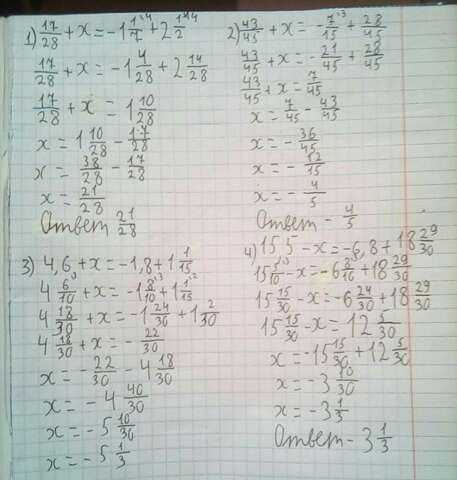 1) 17/28 + x = -1 1/7 ⁴ + 2 1/2 ¹⁴
17/28 + x = -1 4/28 + 2 14/28
17/28 + x = 1 10/28
x = 1 10/28 - 17/28
x = 38/28 - 17/28
x = 21/28
Ответ 21/28
2) 43/45 + x = - 7/15 ³ + 28/45
43/45 + x = - 21/45 + 28/45
43/45 + x = 7/45
x = 7/45 - 43/45
x = - 36/45
x = - 12/15
x = - 4/5
Ответ - 4/5
3) 4,6 + x = -1,8 + 1 1/15
4 6/10 + x = -1 8/10 ³ + 1 1/15 ²
4 18/30 + x = -1 24/30 + 1 2/30
4 18/30 + x = - 22/30
x = - 22/30 - 4 18/30
x = - 4 40/30
x = - 5 10/30
x = - 5 1/3
4) 15 5 - x = -6,8 + 18 29/30
15 5/10 - x = -6 8/10 + 18 29/30
15 15/30 - x = -6 24/30 + 18 29/30
15 15/30 - x = 12 5/30
x = -15 15/30 + 12 5/30
x = -3 10/30
x = -3 1/3
Ответ - 3 1/3